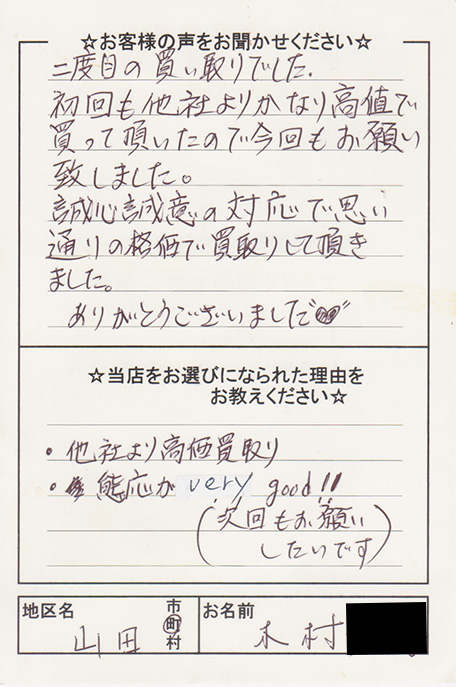 ☆お客様の声をお聞かせください☆
二度目の買い取りでした.
初回も他社よりかなり高値で
買って頂いたので今回もお願い
致しました。
誠心誠意の対応で思い
通りの格価で買取りして頂き
ました。
ありがとうございました
☆当店をお選びになられた理由を
お教えください☆
・他社より高価買取り
・熊応が very good!!
(次回もお願い
したいです)
地区名 山田 市町村 お名前 木村